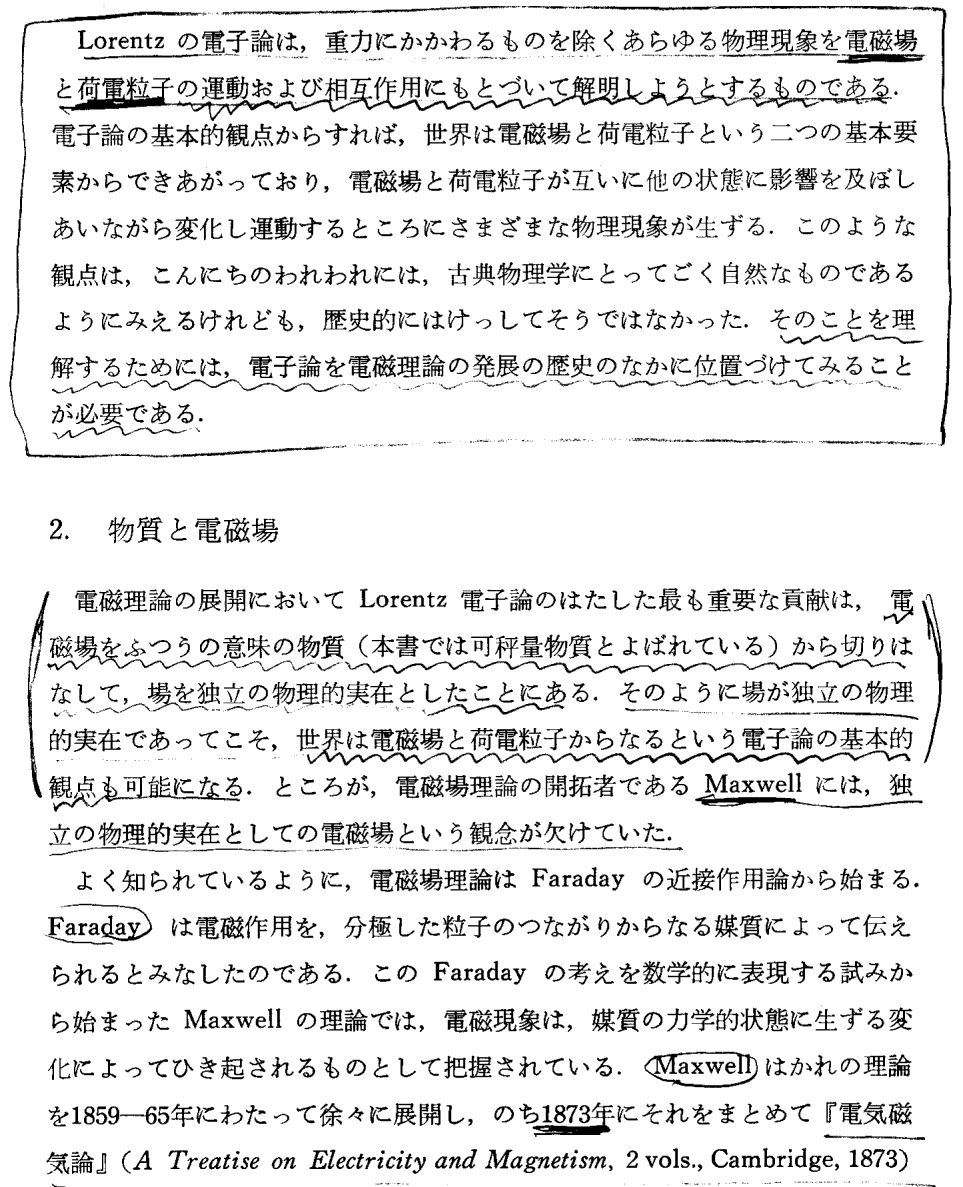 Lorentz の電子論は，重力にかかわるものを除くあらゆる物理現象を電磁場
と荷電粒子の運動および相互作用にもとづいて解明しようとするものである．
電子論の基本的観点からすれば，世界は電磁場と荷電粒子という二つの基本要
素からできあがっており，電磁場と荷電粒子が互いに他の状態に影響を及ぼし
あいながら変化し運動するところにさまざまな物理現象が生ずる．このような
観点は，こんにちのわれわれには，古典物理学にとってごく自然なものである
ようにみえるけれども，歴史的にはけっしてそうではなかった．そのことを理
解するためには，電子論を電磁理論の発展の歴史のなかに位置づけてみること
が必要である．
2. 物質と電磁場
電磁理論の展開において Lorentz 電子論のはたした最も重要な貢献は，電
磁場をふつうの意味の物質（本書では可秤量物質とよばれている）から切りは
なして，場を独立の物理的実在としたことにある．そのように場が独立の物理
的実在であってこそ，世界は電磁場と荷電粒子からなるという電子論の基本的
観点も可能になる．ところが，電磁場理論の開拓者である Maxwell には，独
立の物理的実在としての電磁場という観念が欠けていた．
よく知られているように，電磁場理論は Faraday の近接作用論から始まる．
Faraday は電磁作用を，分極した粒子のつながりからなる媒質によって伝え
られるとみなしたのである．この Faraday の考えを数学的に表現する試みか
ら始まった Maxwell の理論では，電磁現象は，媒質の力学的状態に生ずる変
化によってひき起されるものとして把握されている．Maxwell はかれの理論
を1859—65年にわたって徐々に展開し，のち1873年にそれをまとめて『電気磁
気論』（A Treatise on Electricity and Magnetism, 2 vols., Cambridge, 1873）